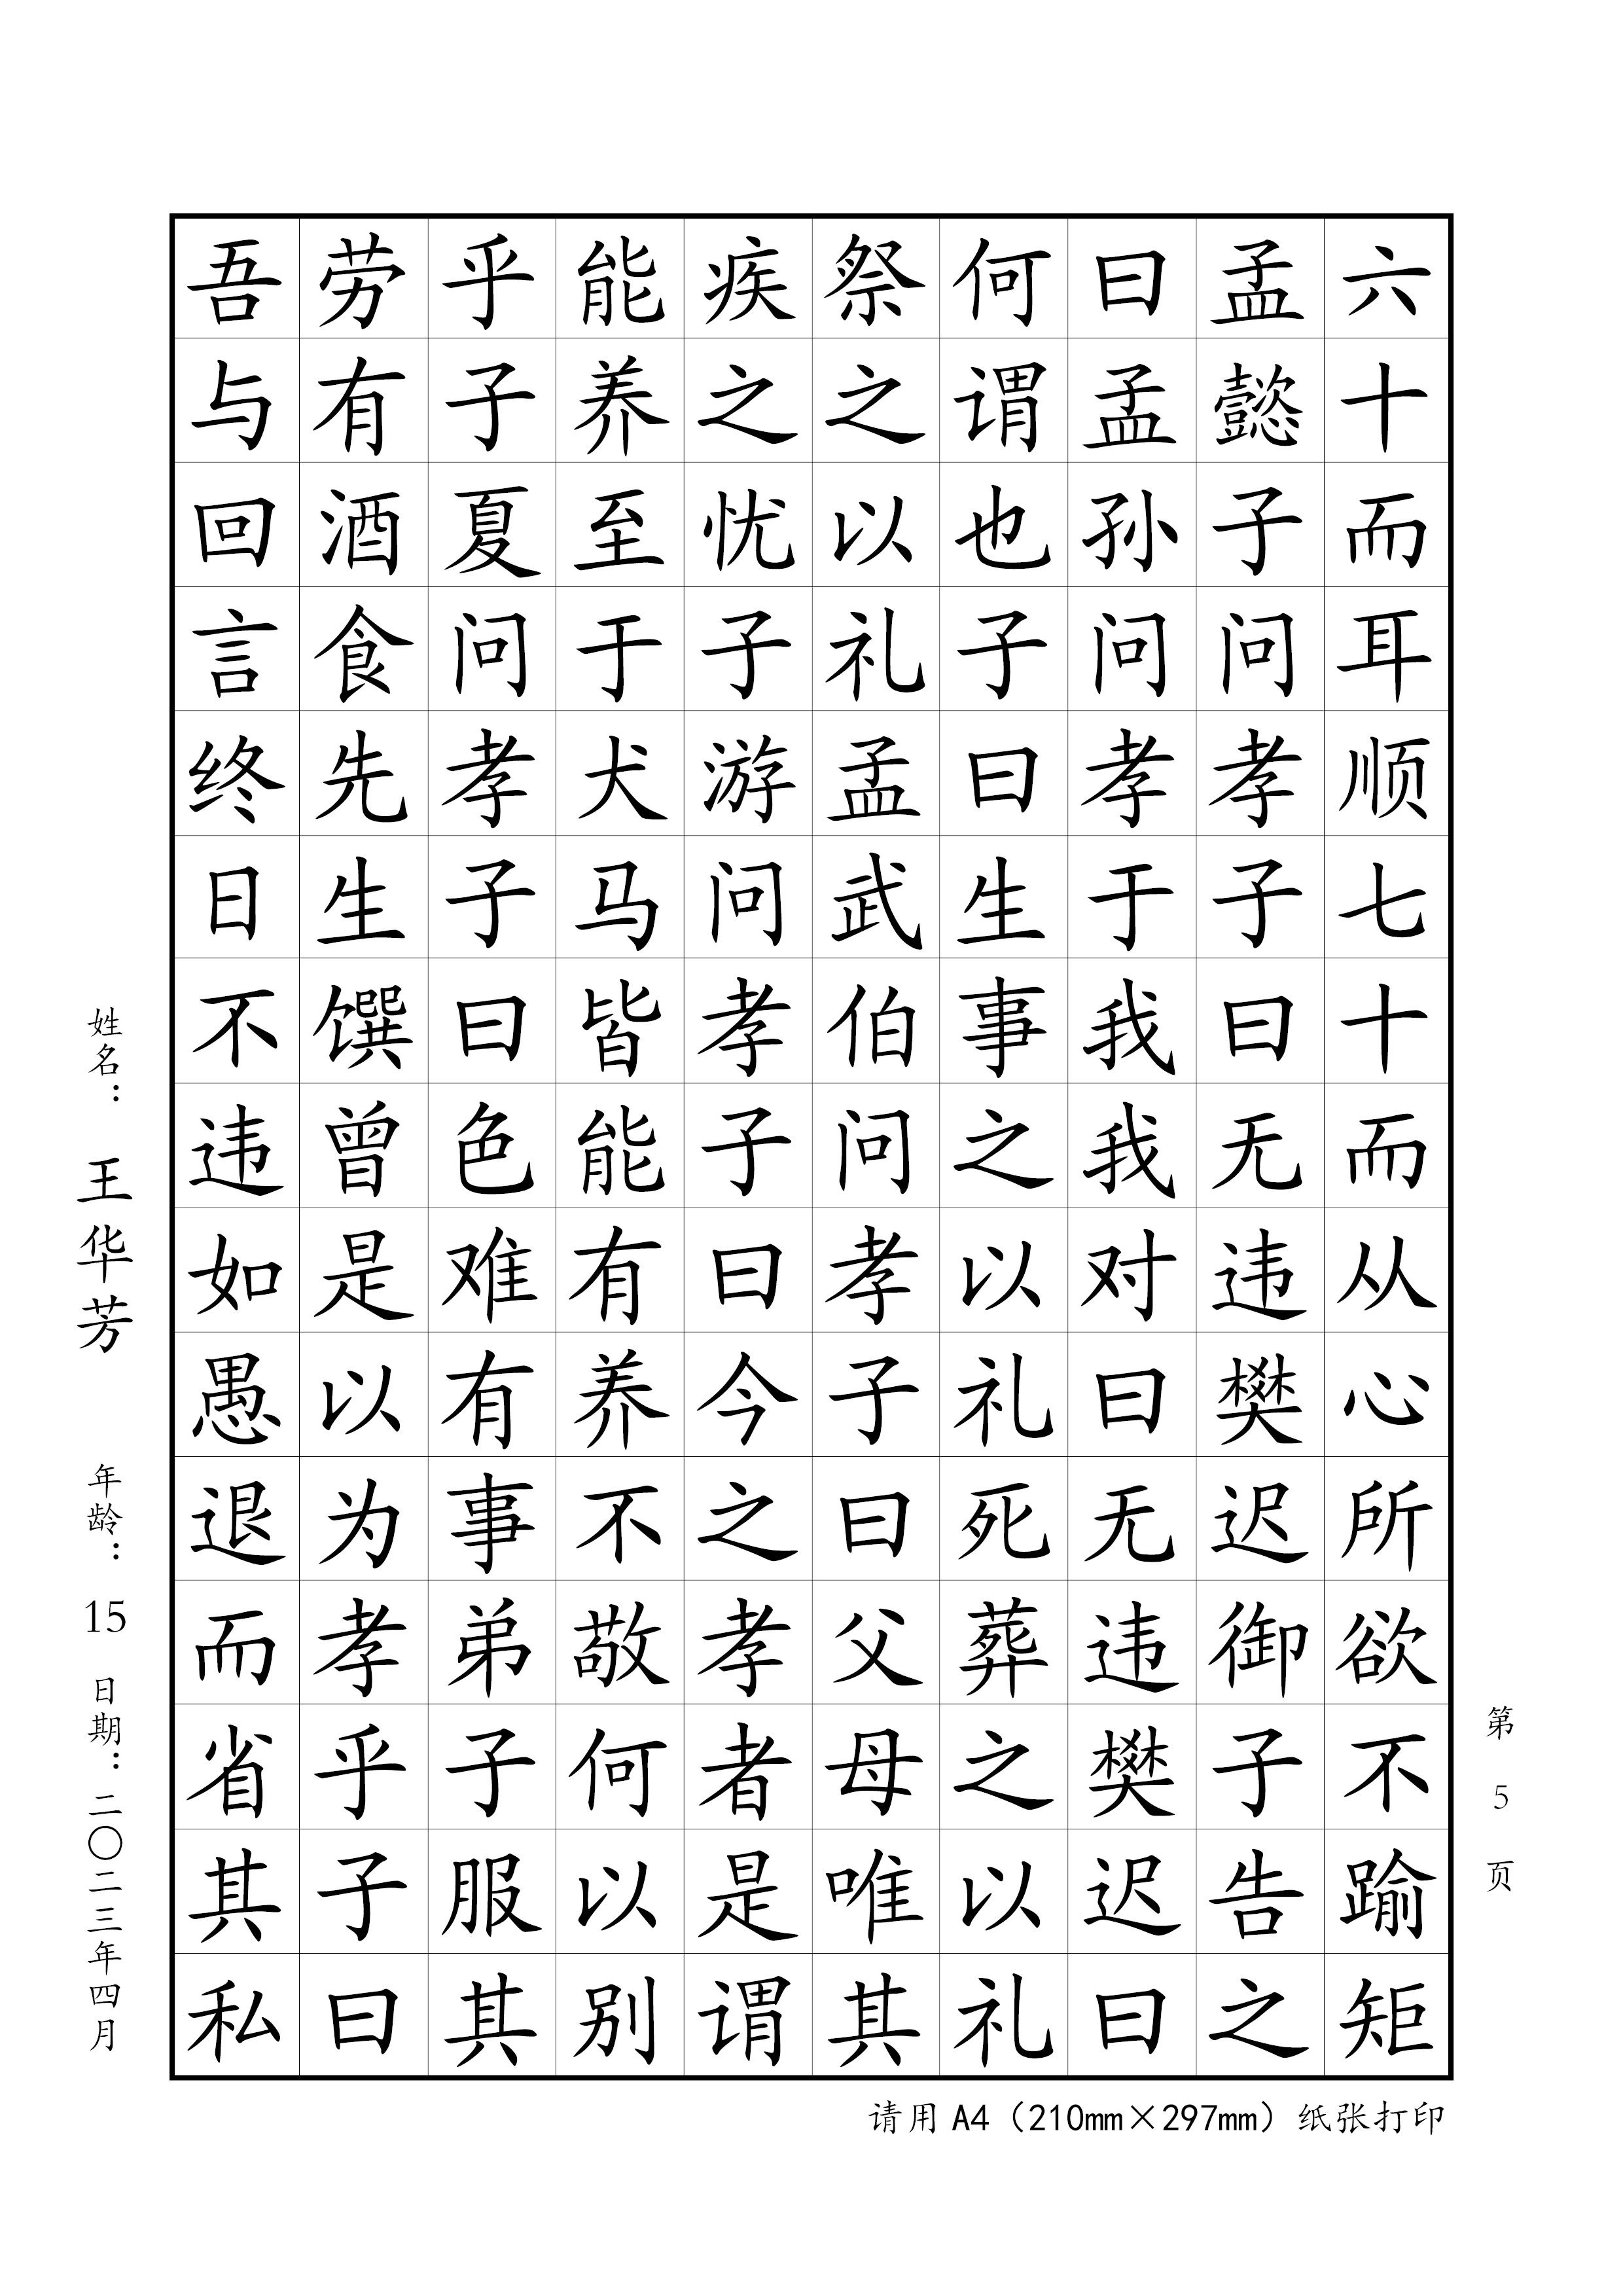 六十而耳顺七十而从心所欲不踰矩
孟懿子问孝子曰无违樊迟御子告之
曰孟孙问孝于我我对曰无违樊迟曰
何谓也子曰生事之以礼死葬之以礼
祭之以礼孟武伯问孝子曰父母唯其
疾之忧子游问孝子曰今之孝者是谓
能养至于犬马皆能有养不敬何以别
乎子夏问孝子曰色难有事弟子服其
劳有酒食先生馔曾是以为孝乎子曰
吾与回言终日不违如愚退而省其私
第 5 页
姓名： 王华芳 年龄： 15 日期：二〇二三年四月
请用 A4（210mm×297mm）纸张打印